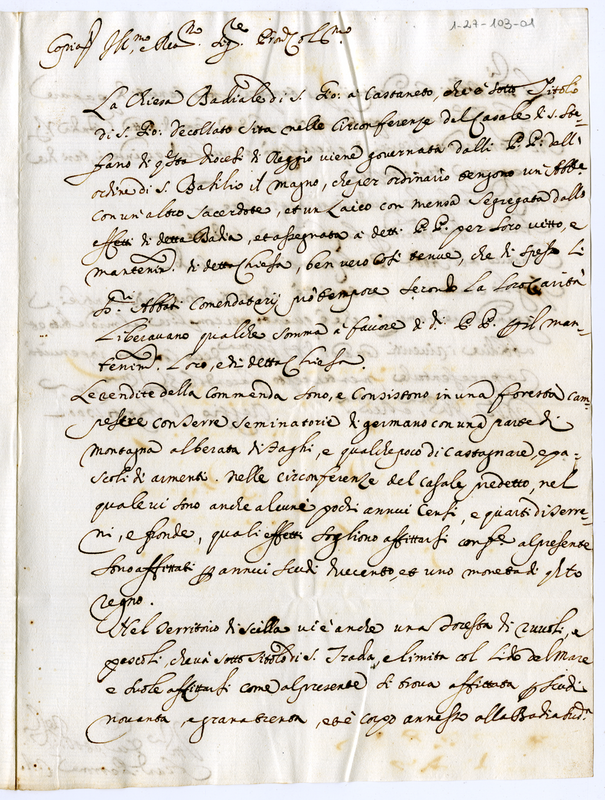 1-27-103-01
Copia Ill.mo e Rea.mo Sig.re Prõn Col.mo
La Chiesa Badiale di S. Gio: a Castaneto, che è sotto Titolo
di S. Gio: decollato sita nelle circonferenze del Casale di S. Ste=
fano di q.sta diocesi di Reggio viene governata dalli P.P. dell'
ordine di S. Basilio il Magno, che per ordinario tengono un Abba.
con un altro sacerdote, et un Laico con mensa segregata dallo
effetti di detta Badia, et assegnata a detti P.P. per loro vitto, e
mantenim.to di detta Chiesa, ben vero così tenue, che di spesso li
S.ri Abbati Comendatarj pro tempore secondo la loro Carità
Liberavano qualche somma a favore di d.i P.P. p il man=
tenim.to loro, e di detta Chiesa.
Le rendite della Commenda sono, e consistono in una foresta cam=
pestre con serre seminatorie di germano con una parte di
montagna alberata di Faghi, e qualche poco di castagnare, e pa=
scoli di armenti. nelle circonferenze del Casale predetto, nel
quale vi sono anche alcune pochi annui censi, e quarti di terre=
ni, e fronde, quali effetti sogliono affittarsi conf.e al presente
sono affittati p annui scudi duecento, et uno moneta di q.sto
regno.
Nel territorio di Scilla vi è anche una Foresta di ruvoli, e
pascoli, che và sotto Titolo di S. Trada, e limita col Lido del Mare
e suole affittarsi come al presente si trova affittata p scudi
novanta, e grana trenta, et è corpo annesso alla Badia sud.a